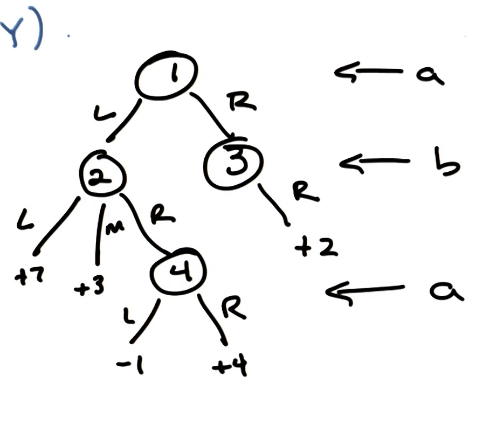 Y)
1 ← a
L R
2 3 ← b
L M R R
+7 +3 +2
4 ← a
L R
-1 +4